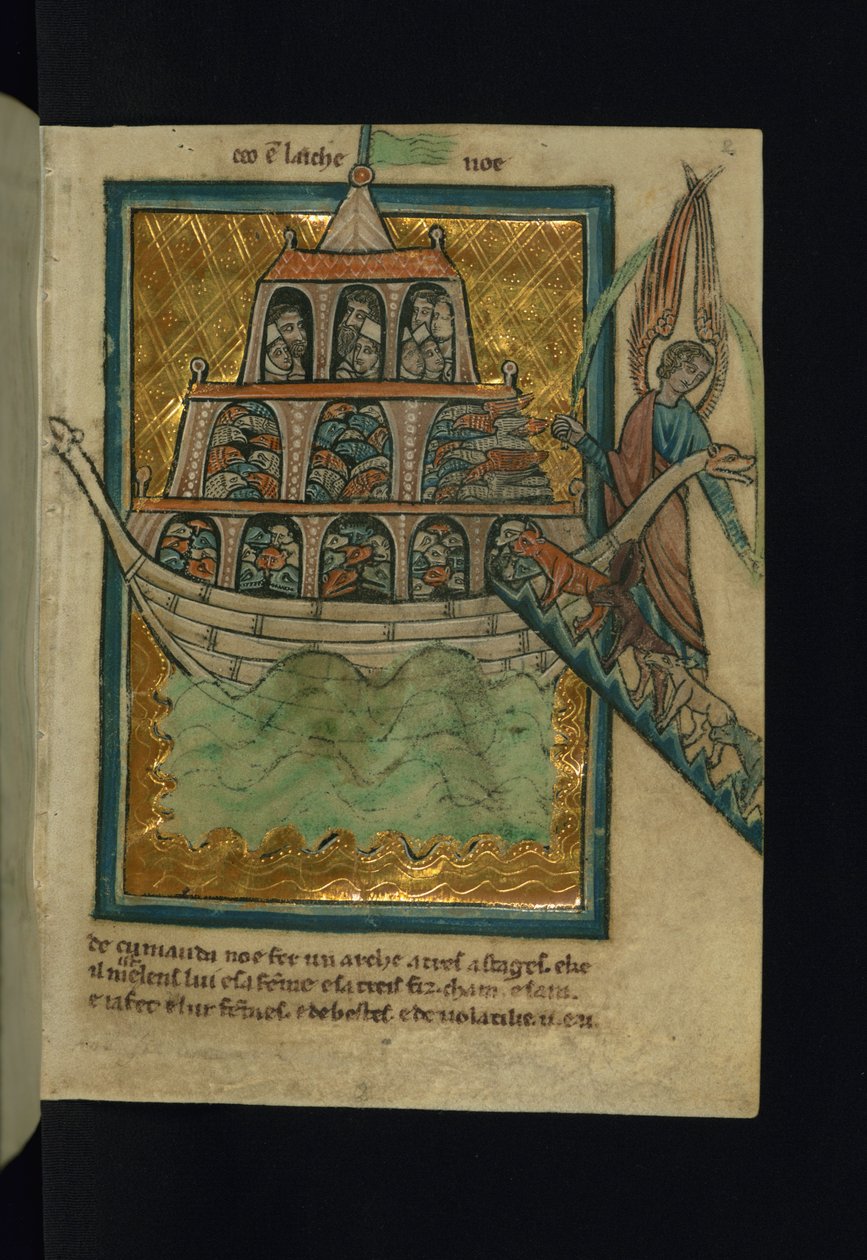 ceo ē larche noe
de cumanda noe fer un arche a treis astages. eke
il meïst enz lui e sa fēme e sa treis fiz. cham. e sam.
e iafet e lur fēmes. e de bestes. e de volatilie. u. e u.